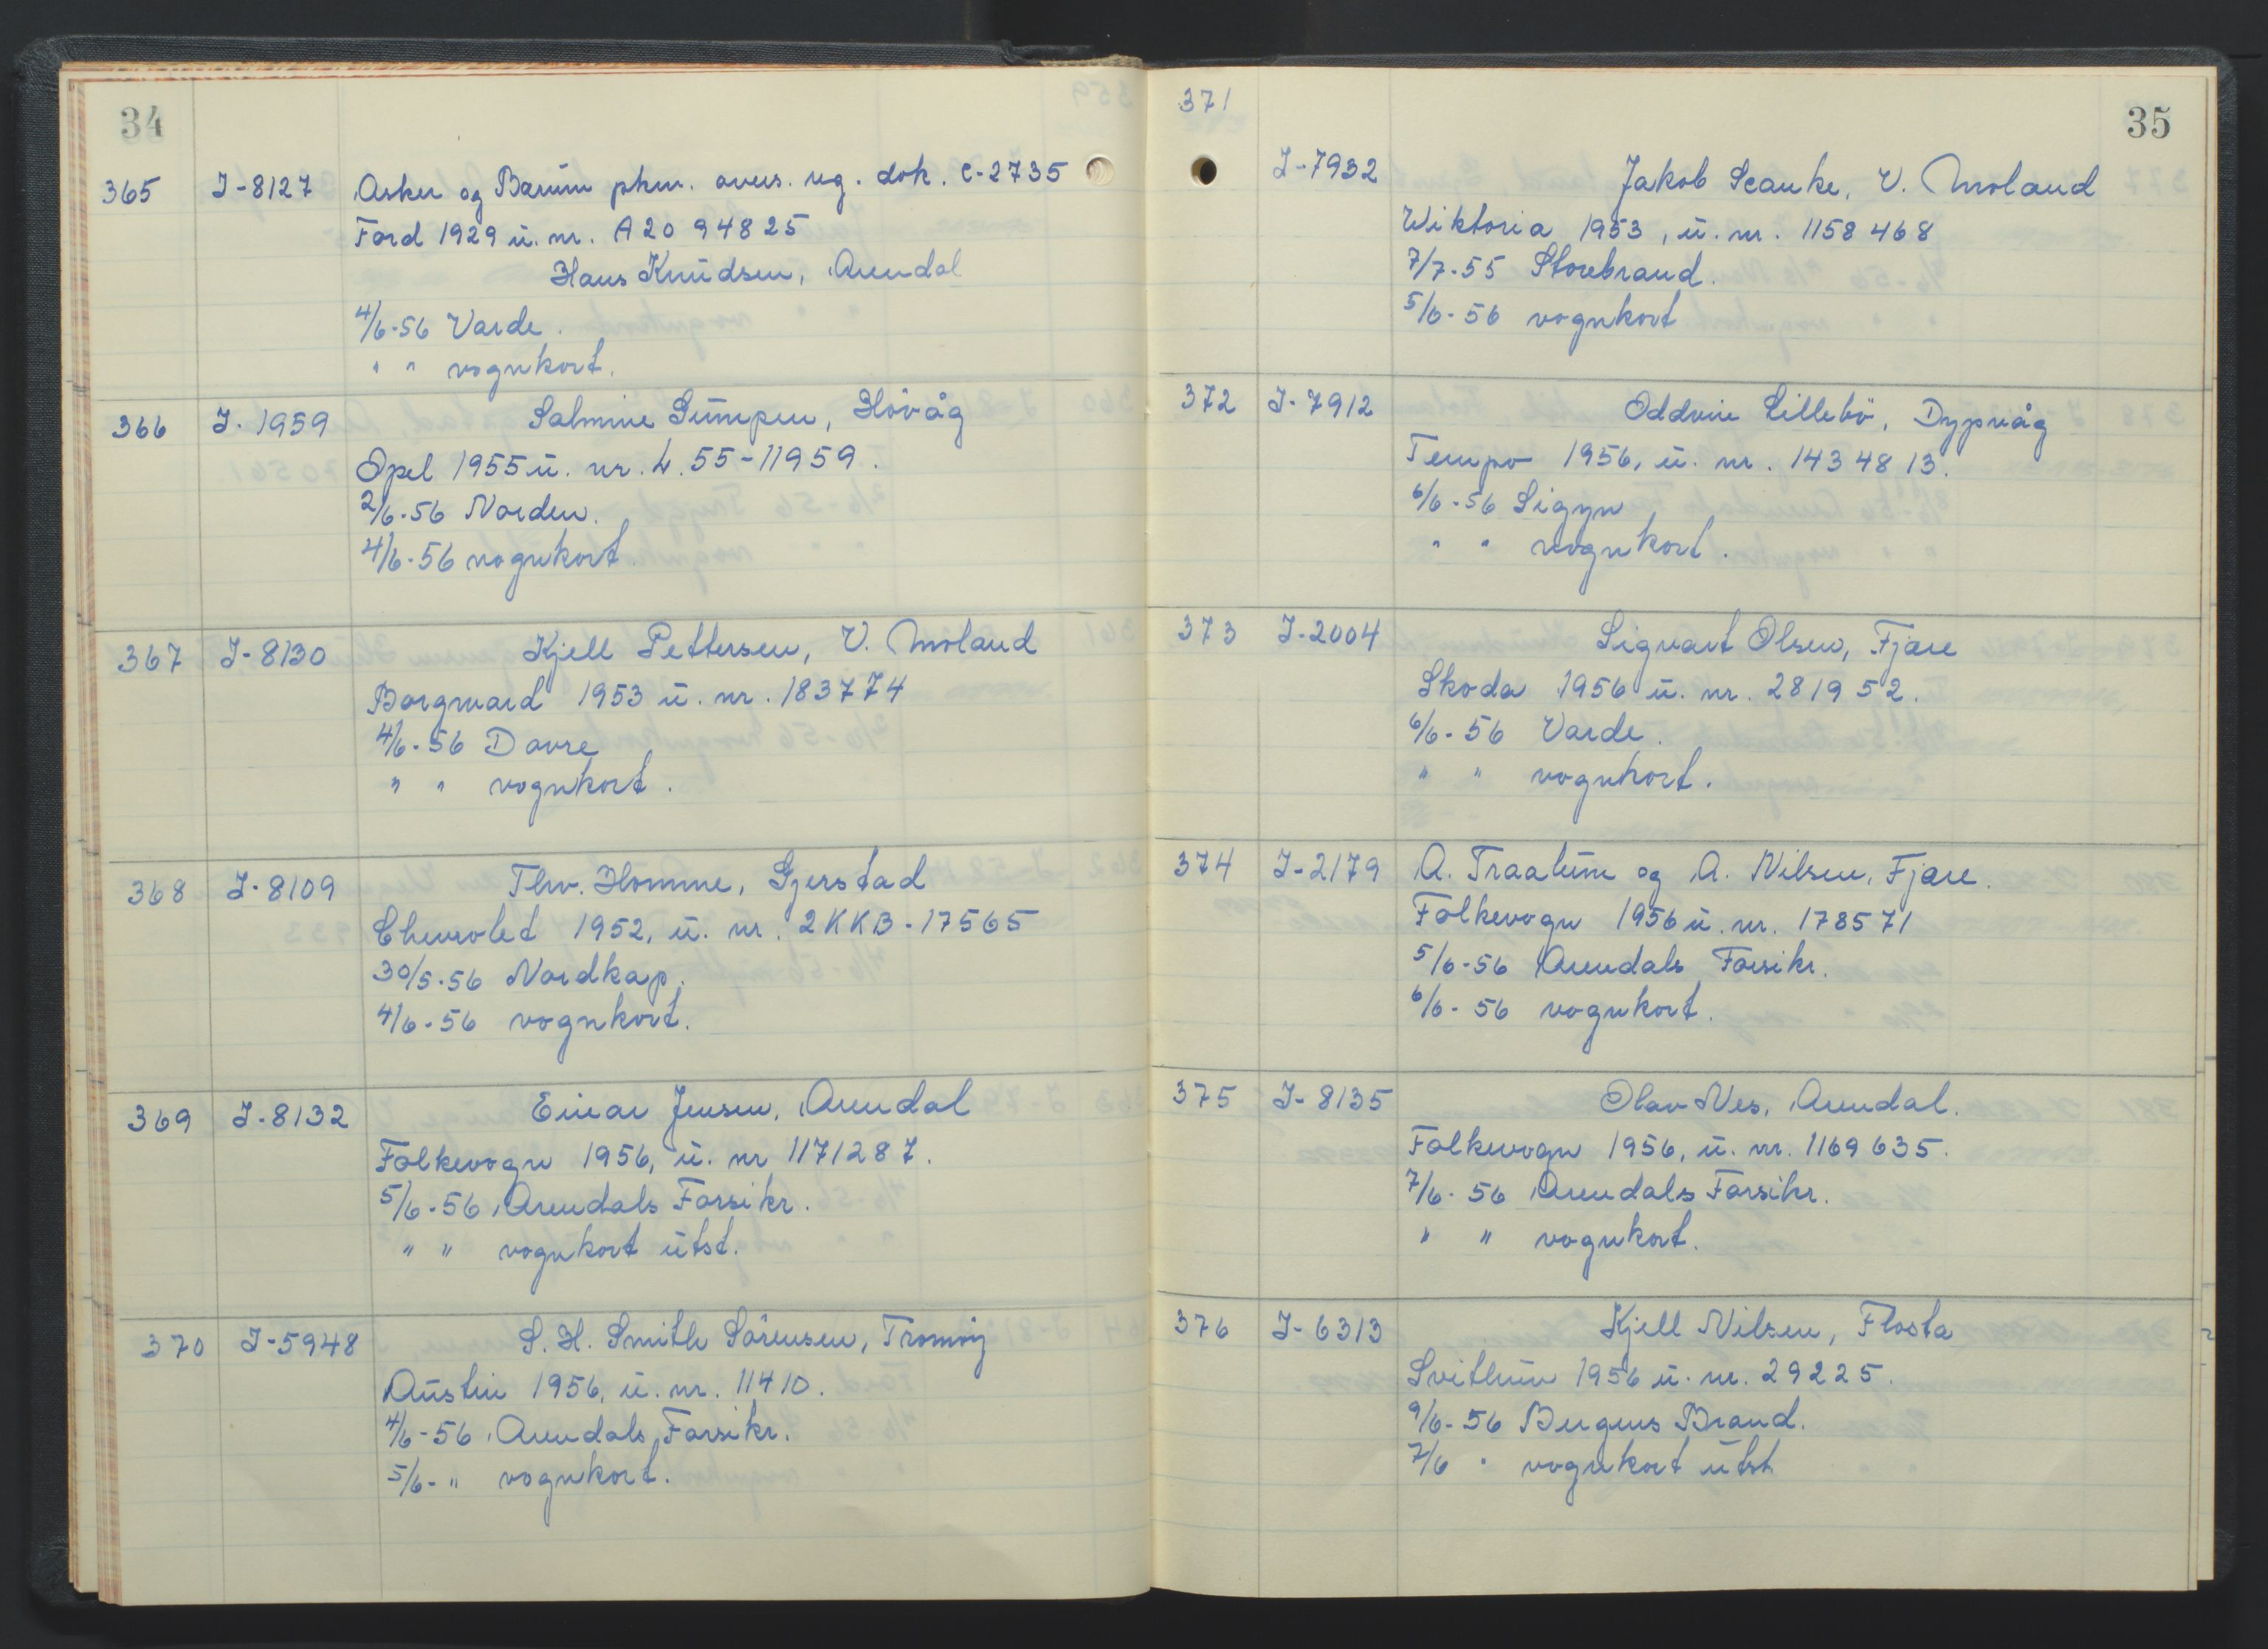 34
365 I-8127 Asker og Bærum phm. overs. reg. dok. C-2735
Ford 1929 u. nr. A 20 94825
Hans Knudsen, Arendal
4/6-56 Varde.
" " vognkort.
366 I-1959 Salmine Sumpen, Hövåg
Opel 1955 u. nr. L. 55-11959.
2/6-56 Norden.
4/6-56 vognkort.
367 I-8130 Kjell Pettersen, V. Moland
Borgward 1953 u. nr. 183774
4/6-56 Dovre
" " vognkort.
368 I-8109 Thv. Homme, Gjerstad
Chevrolet 1952, u. nr. 2KKB-17565
30/5-56 Nordkap.
4/6-56 vognkort.
369 I-8132 Einar Jensen, Arendal
Folkevogn 1956, u. nr 1171287.
5/6-56 Arendals Forsikr.
" " vognkort utst.
370 I-5948 S. H. Smith Sörensen, Tromöy
Austin 1956, u. nr. 11410.
4/6-56 Arendals Forsikr.
5/6- " vognkort.
35
371 I-7932 Jakob Scanke, V. Moland
Wiktoria 1953, u. nr. 1158468
7/7-55 Storebrand.
5/6-56 vognkort
372 I-7912 Oddvin Lillebö, Dypvåg
Tempo 1956, u. nr. 1434813.
6/6-56 Sigyn
" " vognkort.
373 I-2004 Sigvart Olsen, Fjære
Skoda 1956 u. nr. 281952.
6/6-56 Varde.
" " vognkort.
374 I-2179 A. Traalum og A. Nilsen, Fjære.
Folkevogn 1956 u. nr. 178571
5/6-56 Arendals Forsikr.
6/6-56 vognkort.
375 I-8135 Olav Nes, Arendal.
Folkevogn 1956, u. nr. 1169635.
7/6-56 Arendals Forsikr.
" " vognkort.
376 I-6313 Kjell Nilsen, Flosta
Svithun 1956 u. nr. 29225.
9/6-56 Bergens Brand.
7/6 " vognkort utst